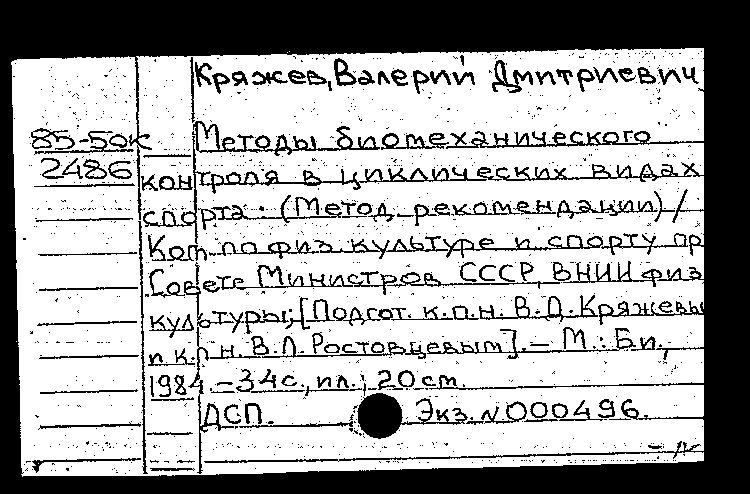 Кряжев, Валерий Дмитриевич
85-50к Методы биомеханического
2486 контроля в циклических видах
спорта: (Метод. рекомендации) /
Ком. по физ. культуре и спорту пр
Совете Министров СССР, ВНИИ физ
культуры; [Подгот. к.п.н. В.Д. Кряжевы
и к.п.н. В.Л. Ростовцевым]. — М.: Б.и.,
1984. — 34 с., ил.; 20 см.
ДСП. Экз. № 000496.